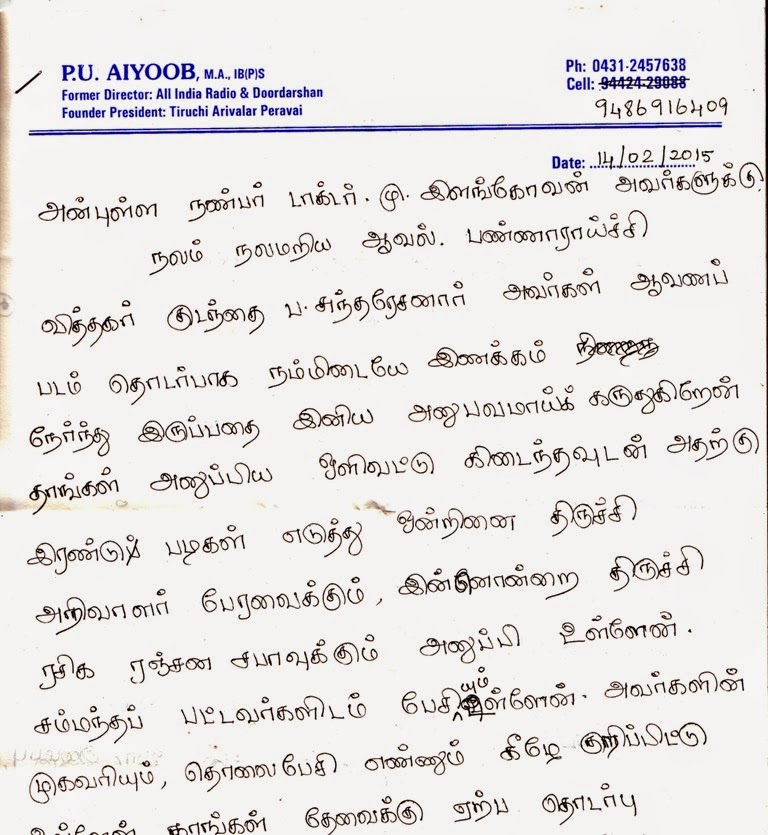 P.U. AIYOOB, M.A., IB(P)S
Former Director: All India Radio & Doordarshan
Founder President: Tiruchi Arivalar Peravai
Ph: 0431-2457638
Cell: 94424-29088
9486916409
Date: 14/02/2015
அன்புள்ள நண்பர் டாக்டர். மு. இளங்கோவன் அவர்களுக்கு,
நலம் நலமறிய ஆவல். பண்ணாராய்ச்சி
வித்தகர் குடந்தை ப. சுந்தரேசனார் அவர்கள் ஆவணப்
படம் தொடர்பாக நம்மிடையே இணக்கம்
நேர்ந்து இருப்பதை இனிய அனுபவமாய்க் கருதுகிறேன்
தாங்கள் அனுப்பிய ஒளிவட்டு கிடைந்தவுடன் அதற்கு
இரண்டு படிகள் எடுத்து ஒன்றினை திருச்சி
அறிவாளர் பேரவைக்கும், இன்னொன்றை திருச்சி
ரசிக ரஞ்சன சபாவுக்கும் அனுப்பி உள்ளேன்.
சம்மந்தப் பட்டவர்களிடம் பேசியும் உள்ளேன். அவர்களின்
முகவரியும், தொலைபேசி எண்ணும் கீழே குறிப்பிட்டு
உள்ளேன் தாங்கள் தேவைக்கு ஏற்ப தொடர்பு